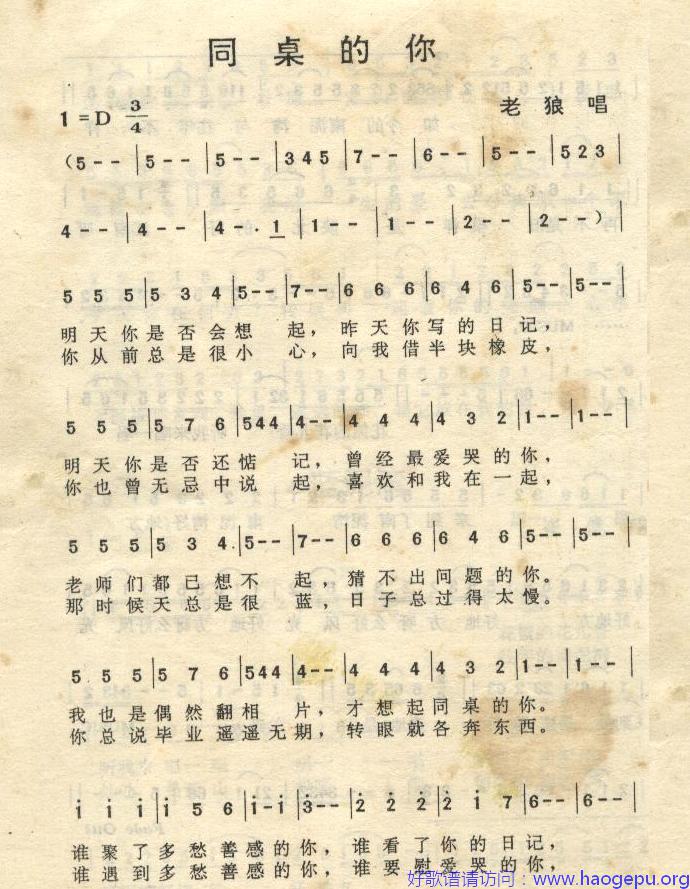 同桌的你
1=D 3/4
老狼唱
(5--|5--|5--|345|7--|6--|5--|523|
4--|4--|4-·1|1--|1--|2--|2--)|
5 5 5|5 3 4|5--|7--|6 6 6|6 4 6|5--|5--|
明天你是否会想起,昨天你写的日记,
你从前总是很小心,向我借半块橡皮,
5 5 5|5 7 6|544|4--|4 4 4|4 3 2|1--|1--|
明天你是否还惦记,曾经最爱哭的你,
你也曾无忌中说起,喜欢和我在一起,
5 5 5|5 3 4|5--|7--|6 6 6|6 4 6|5--|5--|
老师们都已想不起,猜不出问题的你。
那时候天总是很蓝,日子总过得太慢。
5 5 5|5 7 6|544|4--|4 4 4|4 3 2|1--|1--|
我也是偶然翻相片,才想起同桌的你。
你总说毕业遥遥无期,转眼就各奔东西。
i i i|i 5 6|i-i|3̇--|2̇ 2̇ 2̇|2̇ i 7|6--|6--|
谁聚了多愁善感的你,谁看了你的日记,
谁遇到多愁善感的你,谁要慰爱哭的你,
好歌谱请访问:www.haogepu.org